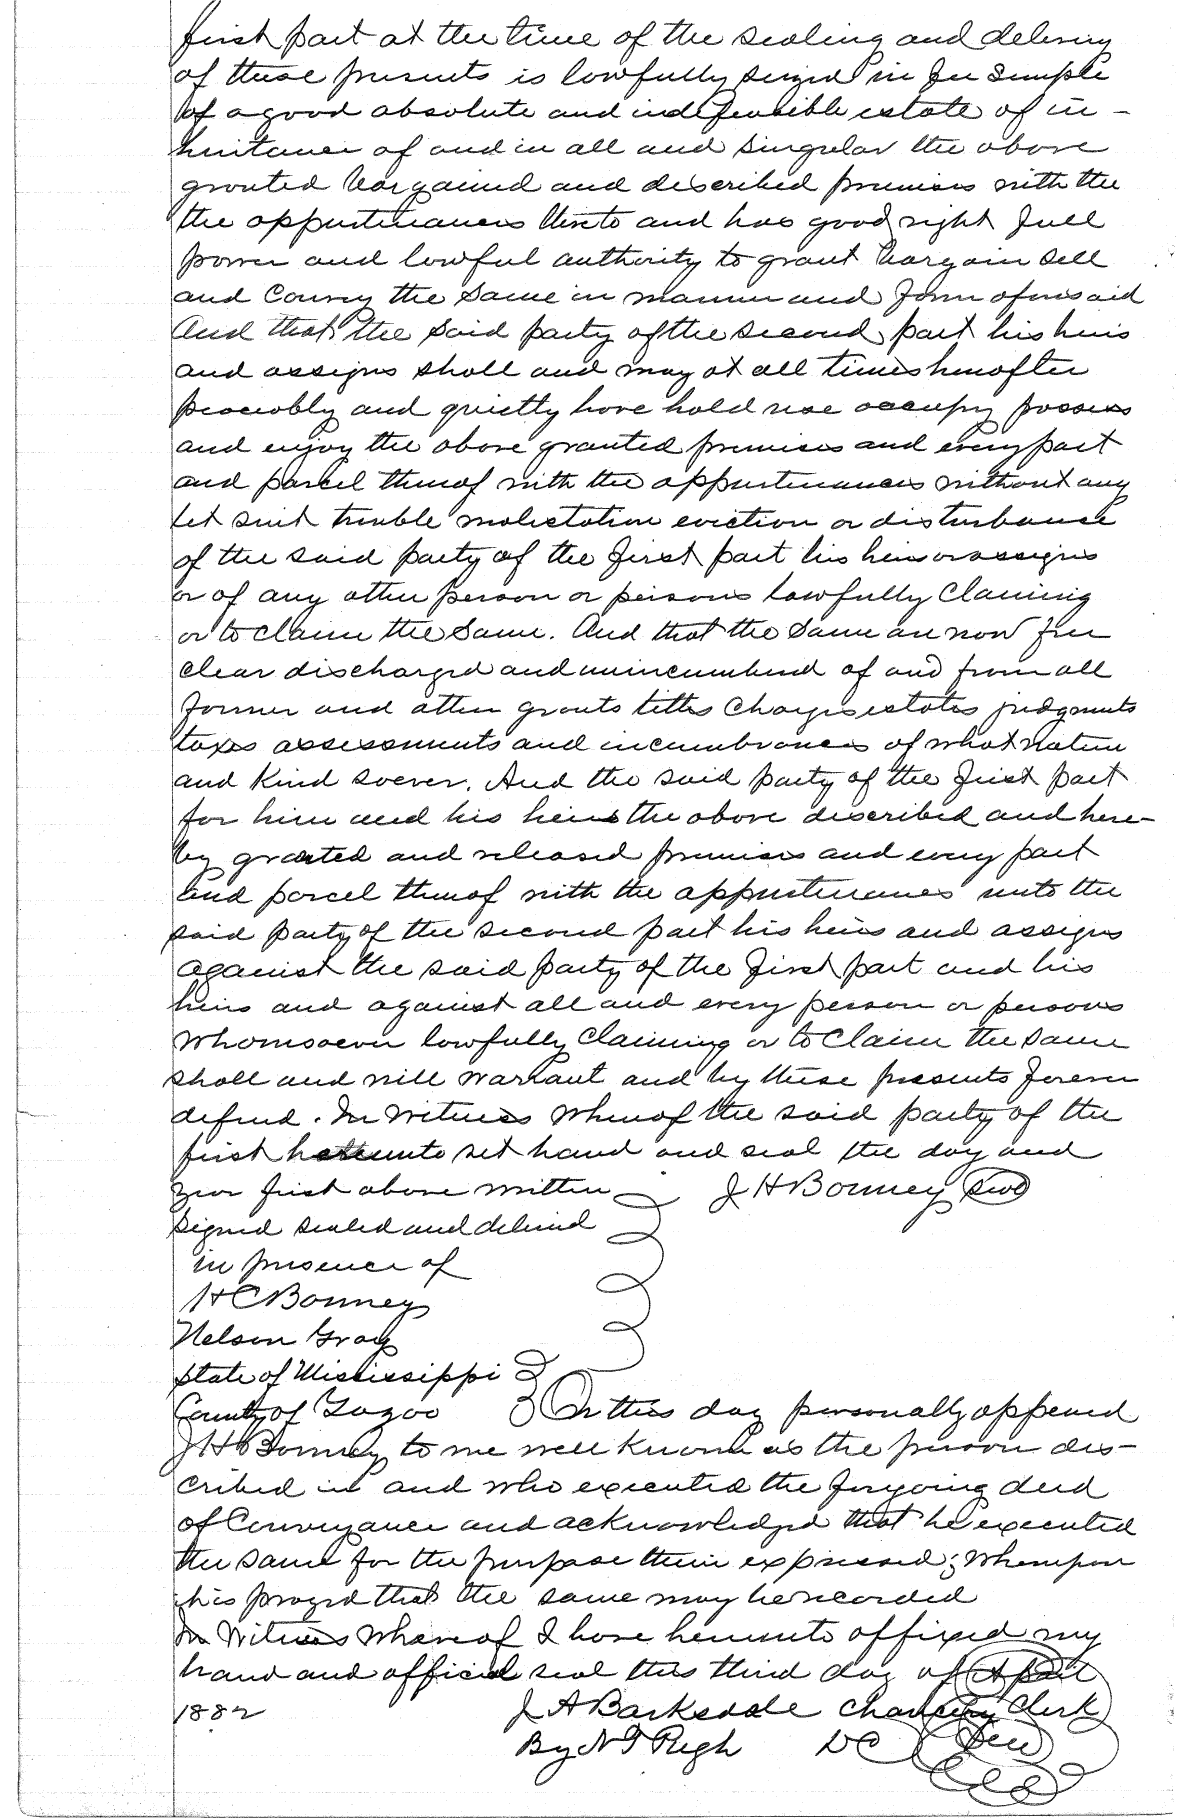 first part at the time of the sealing and delivery
of these presents is lawfully seized in fee simple
of a good absolute and indefeasible estate of in-
heritance of and in all and singular the above
granted bargained and described premises with the
the appurtenances thereto and has good right full
power and lawful authority to grant bargain sell
and Convey the same in manner and form aforesaid
And that the said party of the second part his heirs
and assigns shall and may at all times hereafter
peaceably and quietly have hold use occupy possess
and enjoy the above granted premises and every part
and parcel thereof with the appurtenances without any
let suit trouble molestation eviction or disturbance
of the said party of the first part his heirs or assigns
or of any other person or persons lawfully Claiming
or to claim the same. And that the same are now free
clear discharged and unincumbered of and from all
former and other grants titles Charges estates judgments
taxes assessments and incumbrances of what nature
and Kind soever. And the said party of the first part
for him and his heirs the above described and here-
by granted and released premises and every part
and parcel thereof with the appurtenances unto the
said party of the second part his heirs and assigns
against the said party of the first part and his
heirs and against all and every person or persons
Whomsoever lawfully Claiming or to Claim the same
shall and will warrant and by these presents forever
defend. In Witness Whereof the said party of the
first hereunto set hand and seal the day and
year first above written J H Bonney Seal
Signed sealed and delivered
in presence of
H C Bonney
Nelson Gray
State of Mississippi
County of Yazoo On this day personally appeared
J H Bonney to me well known as the person des-
cribed in and who executed the foregoing deed
of Conveyance and acknowledged that he executed
the same for the purpose therein expressed; Whereupon
his prayed that the same may be recorded
In Witness Whereof I have hereunto affixed my
hand and official seal this third day of April
1882 J A Barksdale Chancery Clerk
By N T DC Seal